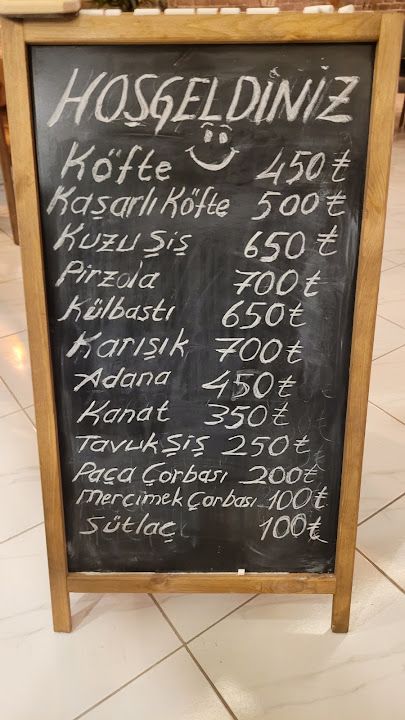 HOŞGELDİNİZ
Köfte 450₺
Kaşarlı Köfte 500₺
Kuzu Şiş 650₺
Pirzola 700₺
Külbastı 650₺
Karışık 700₺
Adana 450₺
Kanat 350₺
Tavuk Şiş 250₺
Paça Çorbası 200₺
Mercimek Çorbası 100₺
Sütlaç 100₺